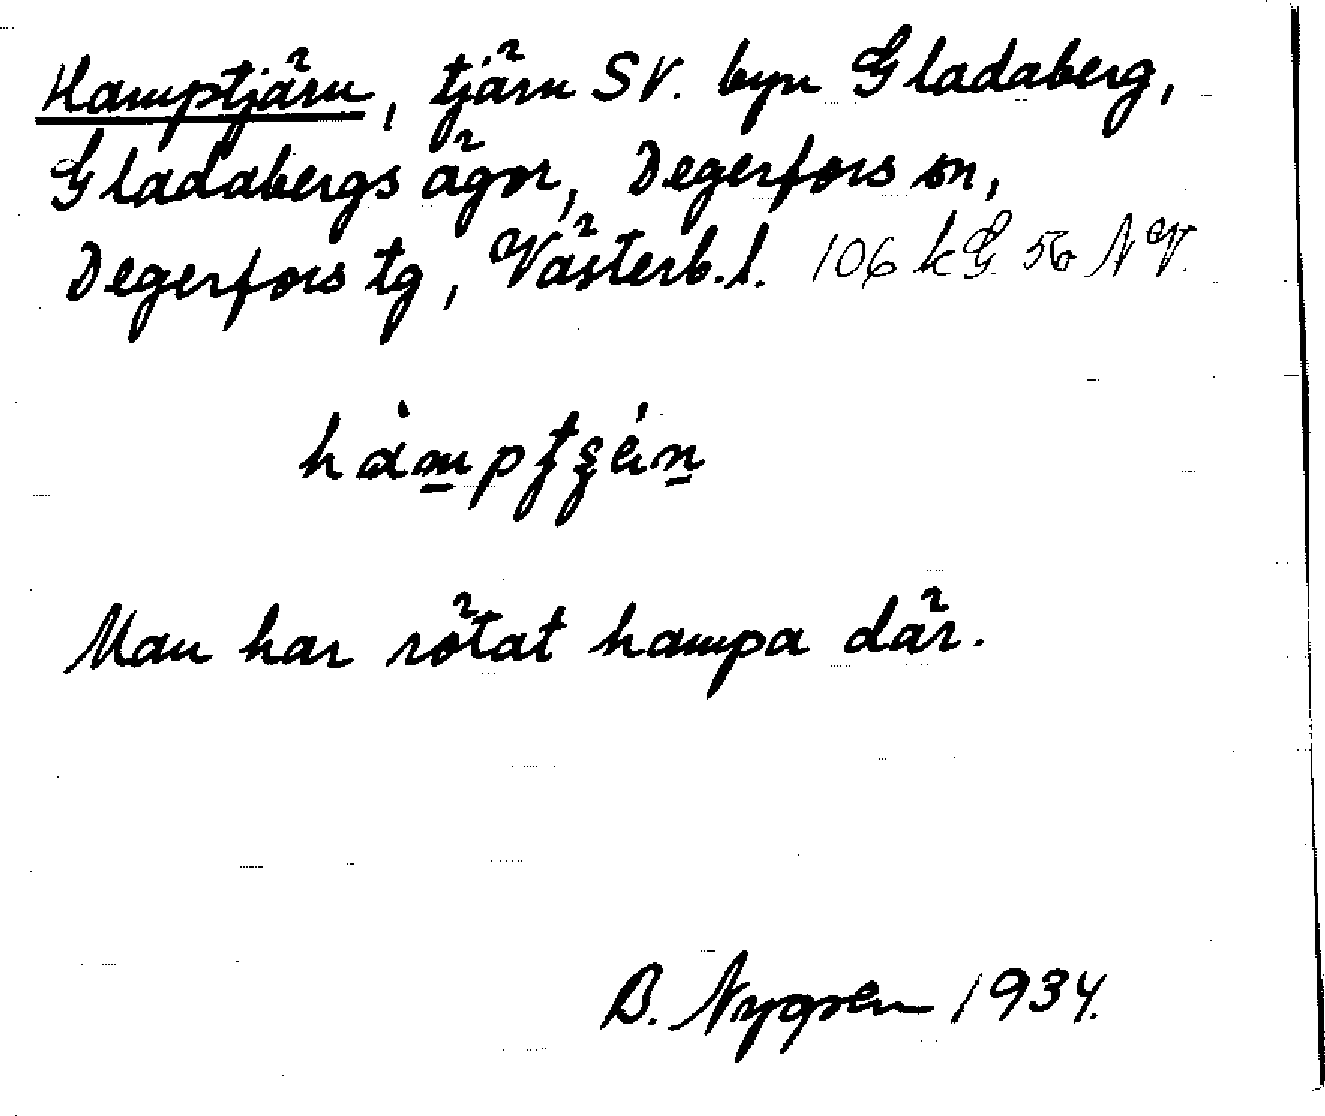 Hamptjärn, tjärn SV. byn Gladaberg,
Gladabergs ägor, Degerfors sn,
Degerfors tg, Västerb. l. 106 k G. 56 NV.
Man har rötat hampa där.
B. Nygren 1934.